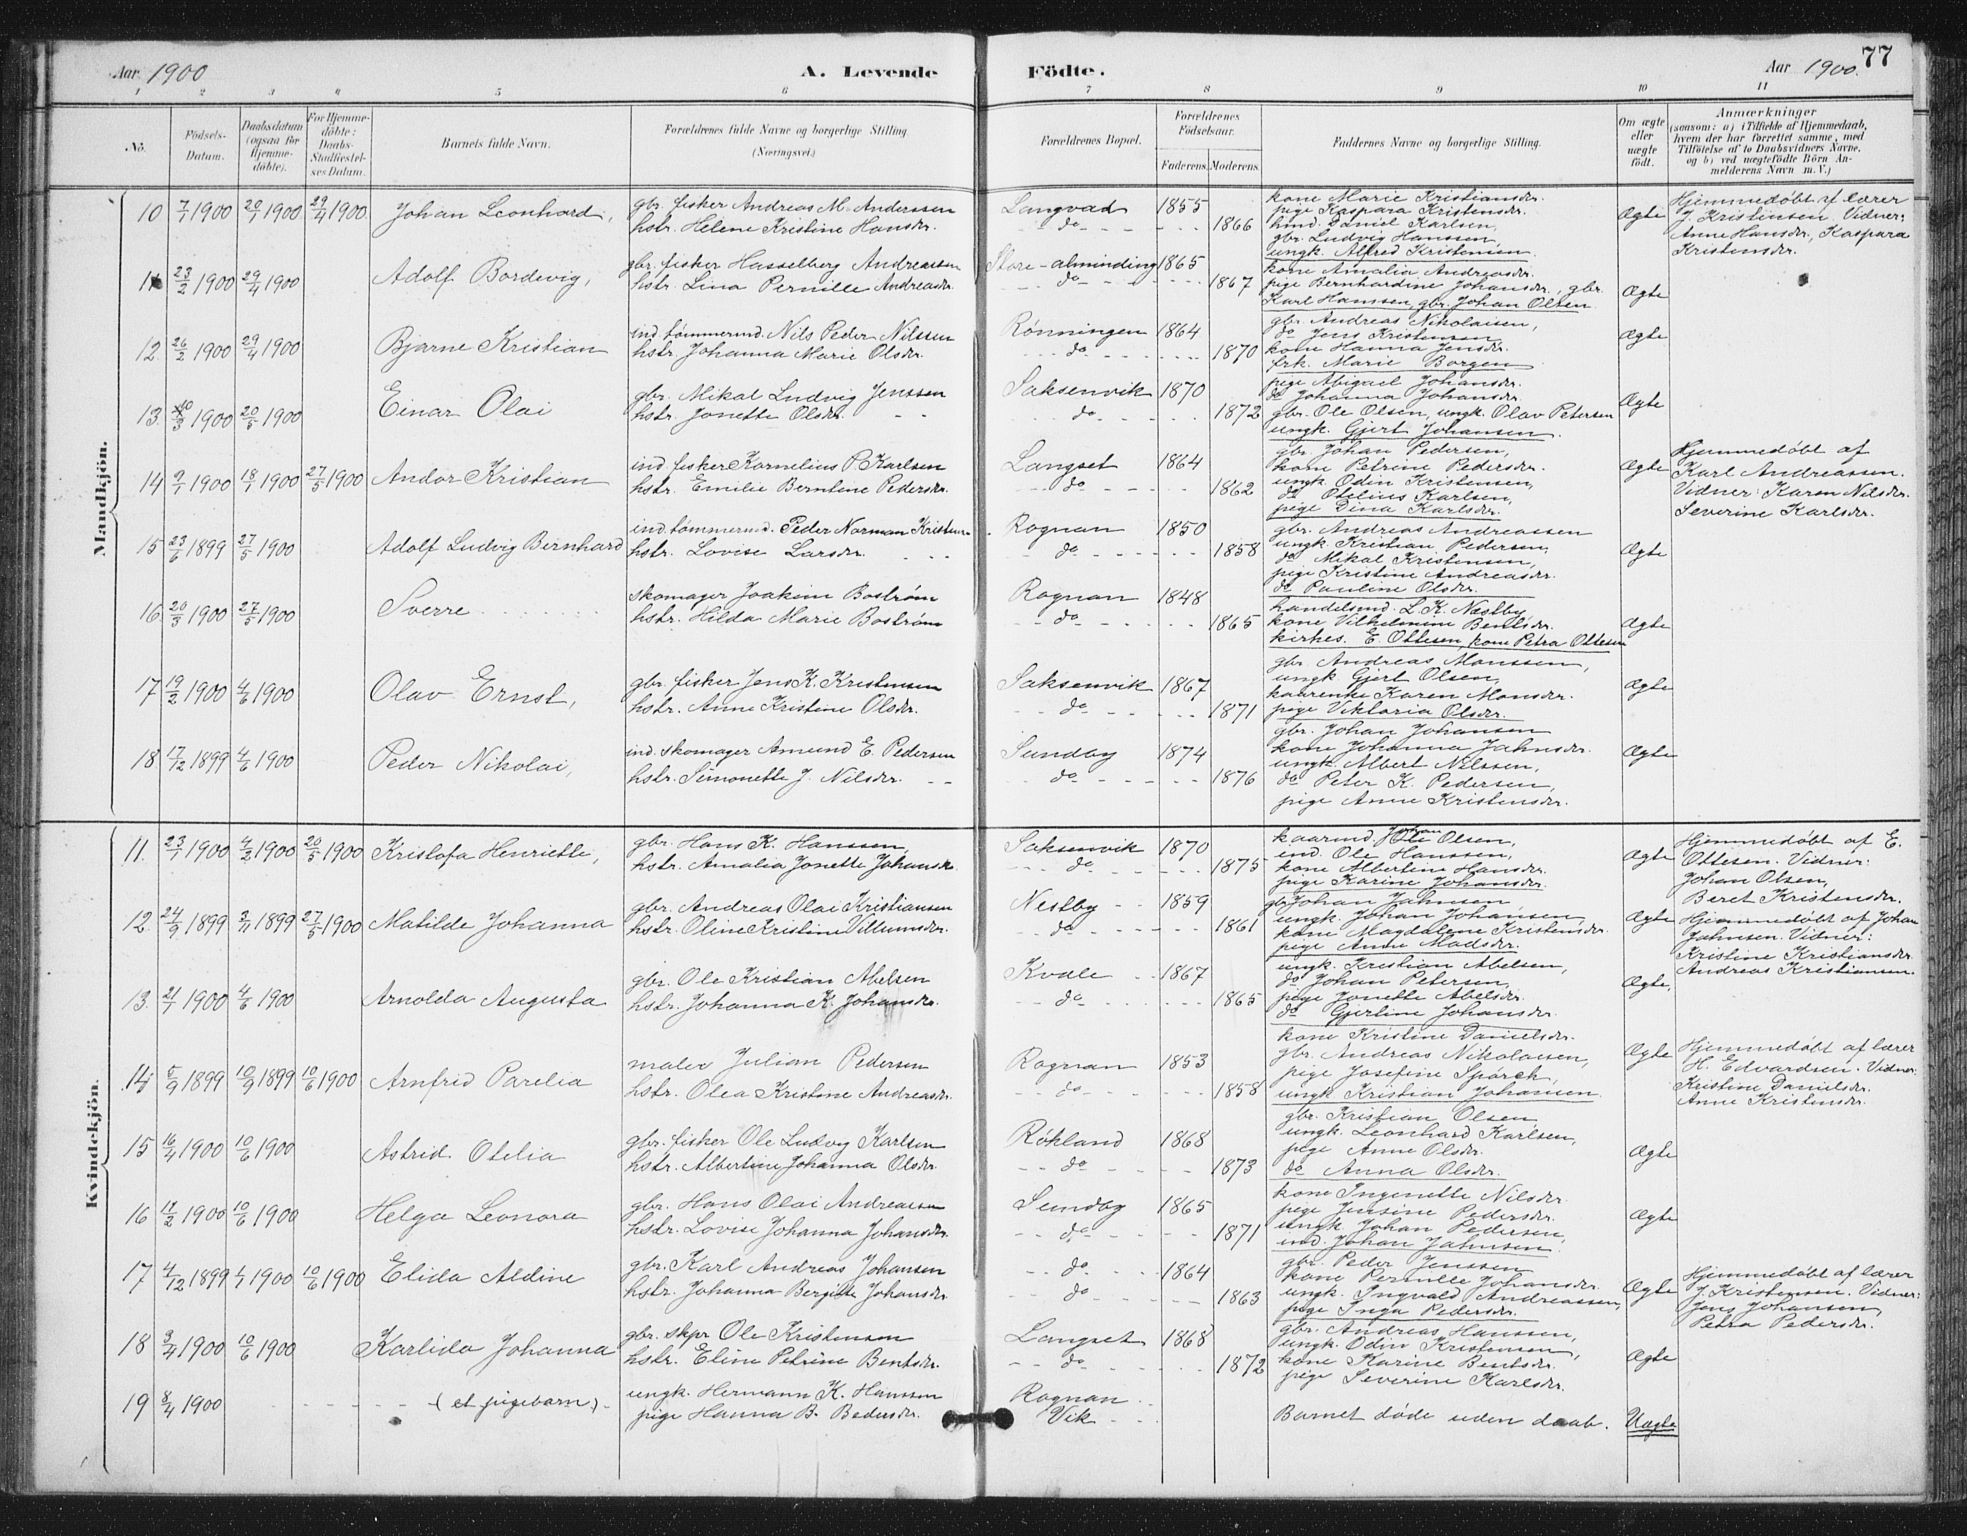 Aar 1900 A. Levende Födte. Aar 1900. 77
1 2 3 4 5 6 7 8 9 10 11
No. Födsels-Datum. Daabsdatum (ogsaa for Hjemmedöbte). For Hjemmedöbte: Daabs-Stadfæstelses Datum. Barnets fulde Navn. Forældrenes fulde Navne og borgerlige Stilling. (Næringsvei.) Forældrenes Bopæl. Forældrenes Födselsaar. Faderens. Moderens. Faddernes Navne og borgerlige Stilling. Om ægte eller uægte födt. Anmærkninger (saasom: a) i Tilfælde af Hjemmedaab, hvem der har forrettet samme, med Tilföielse af to Daabsvidners Navne, og b) ved uægtefödte Börn Anmelderens Navn m. V.)
Mandkjön.
10 7/1 1900 20/1 1900 29/4 1900 Johan Leonhard, gbr. fisker Andreas M. Anderssen Langvad 1855 kone Marie Kristiansdr. Ægte Hjemmedøbt af lærer
hstr. Helene Kristine Hansdr. do 1866 pige Kaspara Kristensdr. J. Kristensen. Vidner:
hmd. Daniel Karlsen, Anne Hansdr., Kaspara
gbr. Ludvig Hanssen, Kristensdr.
ungk. Alfred Kristensen
11 23/2 1900 29/4 1900 Adolf Bordevig, gbr. fisker Hasselberg Andreassen Store-alminding 1865 kone Amalia Andreasdr. Ægte
hstr. Lina Pernille Andreasdr. do 1867 pige Bernhardine Johansdr., gbr.
Karl Hanssen, gbr. Johan Olsen
12 26/2 1900 29/4 1900 Bjarne Kristian ind. tømmermd. Nils Peder Nilssen Rønningen 1864 gbr. Andreas Nikolaisen, Ægte
hstr. Johanna Marie Olsdr. do 1870 do Jens Kristensen
kone Hanna Jensdr.
frk. Marie Borgen
13. 10/3 1900 20/5 1900 Einar Olai gbr. Mikal Ludvig Jenssen Saksenvik 1870 pige Abigael Johansdr. Ægte
hstr. Jonette Olsdr. do 1872 do Johanna Johansdr.
gbr. Ole Olsen, ungk. Olav Petersen
ungk. Gjert Johansen.
14 9/1 1900 18/1 1900 27/5 1900 Andor Kristian ind. fisker Kornelius P. Karlsen Langset 1864 gbr. Johan Pedersen, Ægte Hjemmedøbt af
hstr. Emilie Berntine Pedersdr. do 1862 kone Petrine Pedersdr. Karl Andreassen.
ungk. Odin Kristensen, Vidner: Karen Nilsdr.
do Otelius Karlsen, Severine Karlsdr.
pige Dina Karlsdr.
15 23/6 1899 27/5 1900 Adolf Ludvig Bernhard ind. tømmermd. Peder Norman Kristens. Rognan 1850 gbr. Andreas Andreassen Ægte
hstr. Lovise Larsdr. do 1858 ungk. Kristian Pedersen,
do Mikal Kristensen,
pige Kristine Andreasdr.
do Pauline Olsdr.
16 20/3 1900 27/5 1900 Sverre skomager Joakim Bostrøm Rognan 1848 handelsmd. L. K. Næstby Ægte
hstr. Hilda Marie Bostrøm do 1865 kone Vilhelmine Bentsdr.
kirkes. E. Ottesen, kone Petra Ottesen
17 19/2 1900 4/6 1900 Olav Ernst, gbr. fisker Jens K. Kristensen Saksenvik 1867 gbr. Andreas Monssen, Ægte
hstr. Anne Kristine Olsdr. do 1871 ungk Gjert Olsen,
kaarenke Karen Monsdr.
pige Viktoria Olsdr.
18 17/12 1899 4/6 1900 Peder Nikolai, ind. skomager Amund E. Pedersen Sundby 1874 gbr. Johan Johansen Ægte
hstr. Simonette J. Nilsdr. do 1876 kone Johanna Jahnsdr.
ungk. Albert Nilssen,
do Peter K. Pedersen,
pige Anne Kristensdr.
Kvindekjön.
11. 23/1 1900 4/2 1900 20/5 1900 Kristofa Henriette, gbr. Hans K. Hanssen, Saksenvik 1870 kaarmd. Johan Olsen, Ægte Hjemmedøbt af E.
hstr. Amalia Jonette Johansdr. do 1875 ind. Ole Hanssen, Ottesen. Vidner:
kone Albertine Hansdr. Johan Olsen,
pige Karine Johansdr. Beret Kristensdr.
12. 24/9 1899 3/11 1899 27/5 1900 Matilde Johanna gbr. Andreas Olai Kristiansen Nestby 1859 gbr Johan Jahnsen Ægte Hjemmedøbt af Johan
hstr. Oline Kristine Villumsdr. do 1861 ungk. Johan Johansen, Jahnsen. Vidner:
kone Magdalene Kristensdr. Kristine Kristiansdr.
pige Anne Madsdr. Andreas Kristiansen
13. 21/1 1900 4/6 1900 Arnolda Augusta gbr. Ole Kristian Abelsen Kvale 1867 ungk. Kristian Abelsen, Ægte,
hstr. Johanna K. Johansdr. do 1865 do Johan Petersen,
pige Jonette Abelsdr.
do Gjertine Johansdr.
14 5/9 1899 10/9 1899 10/6 1900 Arnfrid Parelia maler Julian Pedersen Rognan 1853 kone Kristine Danielsdr. Ægte Hjemmedøbt af lærer
hstr. Olea Kristine Andreasdr. do 1858 gbr. Andreas Nikolaisen, H. Edvardsen. Vidner:
pige Josefine Spørck, Kristine Danielsdr.
ungk Kristian Johansen. Anne Kristensdr.
15 16/4 1900 10/6 1900 Astrid Otelia gbr. fisker Ole Ludvig Karlsen Røkland 1868 gbr. Kristian Olsen Ægte
hstr. Albertine Johanna Olsdr. do 1873 ungk. Leonhard Karlsen,
pige Anne Olsdr.
do Anna Olsdr.
16 17/2 1900 10/6 1900 Helga Leonora gbr. Hans Olai Andreassen Sundby 1865 kone Ingenette Nilsdr. Ægte
hstr. Lovise Johanna Johansdr. do 1871 pige Jensine Pedersdr.
ungk. Johan Pedersen,
ind. Johan Jahnsen
17 4/12 1899 1/1 1900 10/6 1900 Elida Aldine gbr. Karl Andreas Johansen do 1864 gbr. Peder Jenssen Ægte Hjemmedøbt af lærer
hstr. Johanna Bergitte Johansdr. do 1863 kone Pernille Johansdr. J. Kristensen. Vidner:
ungk. Ingvald Andreassen, Jens Johansen
pige Inga Pedersdr. Petra Pedersdr.
18 3/4 1900 10/6 1900 Karlida Johanna gbr. skpr. Ole Kristensen Langset 1868 gbr. Andreas Hanssen, Ægte
hstr. Eline Petrine Bentsdr. do 1872 ungk. Odin Kristensen,
kone Karine Bentsdr.
pige Severine Karlsdr.
19 8/4 1900 (et pigebarn) ungk. Hermann K. Hanssen Rognan Barnet døde uden daab. Uægte
pige Hanna B. Pedersdr. Vik